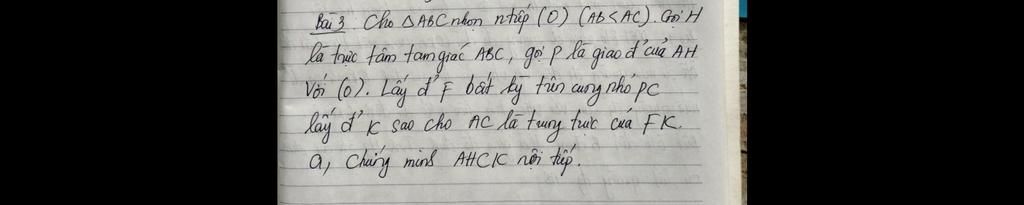 Bài 3. Cho △ABC nhọn ntiếp (O) (AB<AC). Gọi H
là trực tâm tam giác ABC, gọi P là giao đ' của AH
với (O). Lấy đ' F bất kỳ trên cung nhỏ PC
lấy đ' K sao cho AC là trung trực của FK.
a, Chứng minh AHCK nội tiếp.